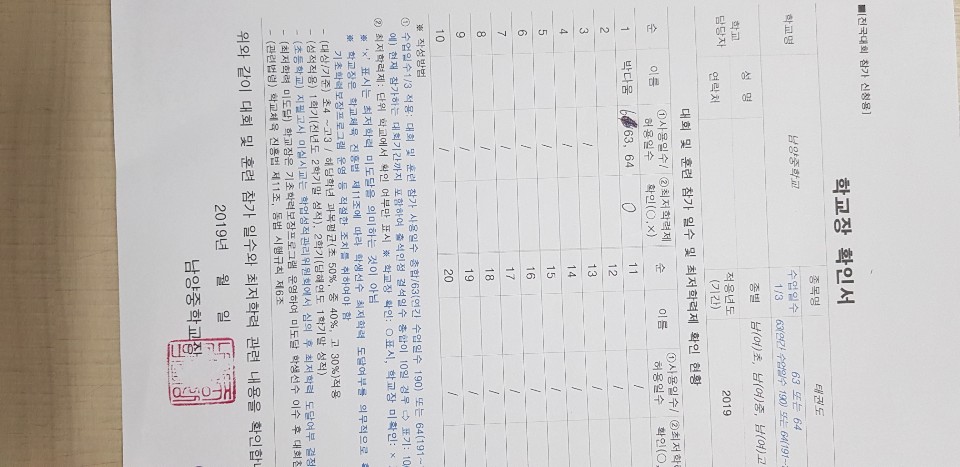 ■[전국대회 참가 신청용]
학교장 확인서
학교명 남양중학교 종목명 태권도
수업일수 1/3 63 또는 64
63(연간 수업일수 190) 또는 64(191~
학교 담당자 성 명 종별 남(여)초, 남(여)중, 남(여)고
연락처 적용년도 (기간) 2019
대회 및 훈련 참가 일수 및 최저학력제 확인 현황
순 이름 ①사용일수/허용일수 ②최저학력제 확인(○,×) 순 이름 ①사용일수/허용일수 ②최저학력 확인(○,
1 박다움 63, 64 ○ 11 /
2 12 /
3 / 13 /
4 / 14 /
5 / 15 /
6 / 16 /
7 / 17 /
8 / 18 /
9 / 19 /
10 / 20 /
※ 작성방법
① 수업일수1/3 적용: 대회 및 훈련 참가 사용일수 총합/63(연간 수업일수 190) 또는 64(191~
예) 현재 참가하는 대회기간까지 포함하여 출석인정 결석일수 총합이 10일 경우 ⇨ 표기: 10/
② 최저학력제: 단위 학교에서 확인 여부만 표시 ※ 학교장 확인: ○표시, 학교장 미확인: ×
※ '×' 표시는 최저학력 미도달을 의미하는 것이 아님
※ 학교장은 학교체육 진흥법 제11조에 따라 학생선수 최저학력 도달여부를 의무적으로
기초학력보장프로그램 운영 등 적절한 조치를 취하여야 함
- (대상/기준) 초4 ~고3 / 해당학년 과목평균(초 50%, 중 40%, 고 30%)적용
- (성적적용) 1학기(전년도 2학기말 성적), 2학기(당해연도 1학기말 성적)
- (초등학교) 지필고사 미실시교는 학업성적관리위원회에서 심의 후 최저학력 도달여부 결정
- (최저학력 미도달) 학교장은 기초학력보장프로그램 운영하여 미도달 학생선수 이수 후 대회
- (관련법령) 학교체육 진흥법 제11조, 동법 시행규칙 제6조
위와 같이 대회 및 훈련 참가 일수와 최저학력 관련 내용을 확인합니
2019년 월 일
남양중학교장